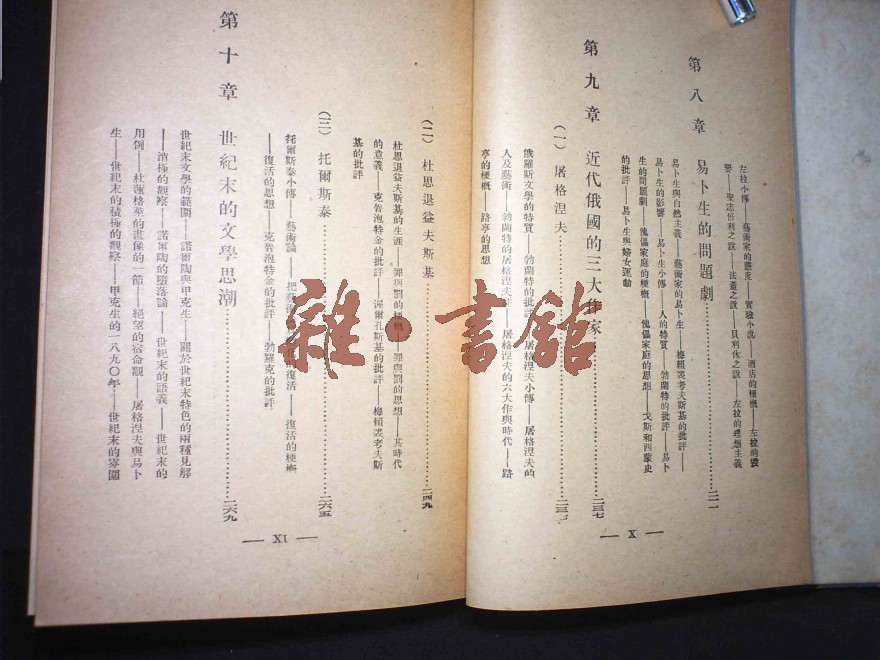 左拉小傳——藝術家的態度——實驗小說——酒店的梗概——左拉的毀
譽——聖志倍利之說——法蓋之說——貝利休之說——左拉的理想主義
第八章 易卜生的問題劇
易卜生與自然主義——藝術家的易卜生——梅賴裘考夫斯基的批評——
易卜生的影響——易卜生小傳——人的特質——勃蘭特的批評——易卜
生的問題劇——傀儡家庭的梗概——傀儡家庭的思想——戈斯和西蒙史
的批評——易卜生與婦女運動
第九章 近代俄國的三大作家
(一)屠格涅夫
俄羅斯文學的特質——勃蘭特的批評——屠格涅夫小傳——屠格涅夫的
人及藝術——勃蘭特的屠格涅夫評——屠格涅夫的六大作與時代——路
亭的梗概——路亭的思想
— X —
(二)杜思退益夫斯基 二四九
杜思退益夫斯基的生涯——罪與罰的梗概——罪與罰的思想——其時代
的意義——克魯泡特金的批評——渥爾孔斯基的批評——梅賴裘考夫斯
基的批評
(三)托爾斯泰 二六五
托爾斯泰小傳——藝術論——復活——復活的梗概
——復活的思想——克魯泡特金的批評——勃羅克的批評
第十章 世紀末的文學思潮 二六九
世紀末文學的範圍——諾爾陶與甲克生——關於世紀末特色的兩種見解
——消極的觀察——諾爾陶的墮落論——世紀末的語義——世紀末的
用例——杜蓮格萊的畫像的一節——絕望的宿命觀——屠格涅夫與易卜
生——世紀末的積極的觀察——甲克生的一八九〇年——世紀末的雰圍
— XI —
雜·書館